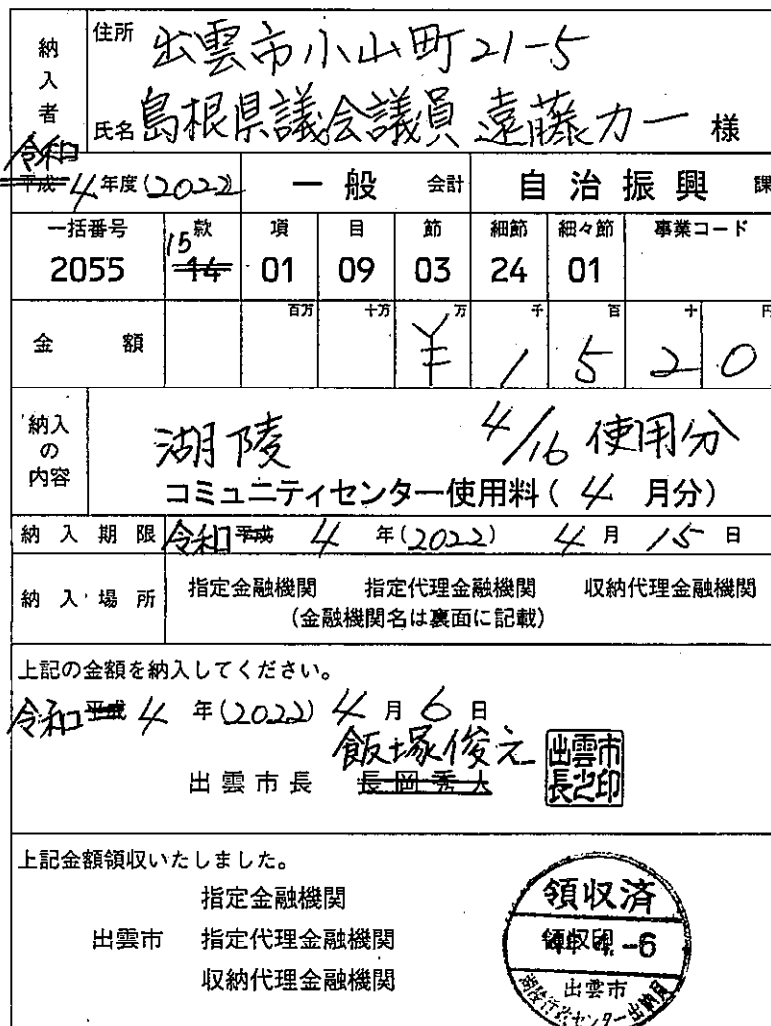 納入者
住所 出雲市小山町21-5
氏名 島根県議会議員 遠藤力一 様
令和
平成 4年度(2022) 一般 会計 自治振興 課
一括番号 款 項 目 節 細節 細々節 事業コード
15
2055 14 01 09 03 24 01
百万 十万 万 千 百 十 円
金額 ¥1520
納入の内容
湖陵 4/16 使用分
コミュニティセンター使用料(4 月分)
納入期限 令和 平成 4 年(2022) 4月 15日
納入場所 指定金融機関 指定代理金融機関 収納代理金融機関
(金融機関名は裏面に記載)
上記の金額を納入してください。
令和 平成 4 年(2022) 4月 6日
飯塚俊之
出雲市長 長岡秀人
出雲市長之印
上記金額領収いたしました。
指定金融機関
出雲市 指定代理金融機関
収納代理金融機関
領収済
領収印
4. 4. -6
出雲市
湖陵行政センター出納員